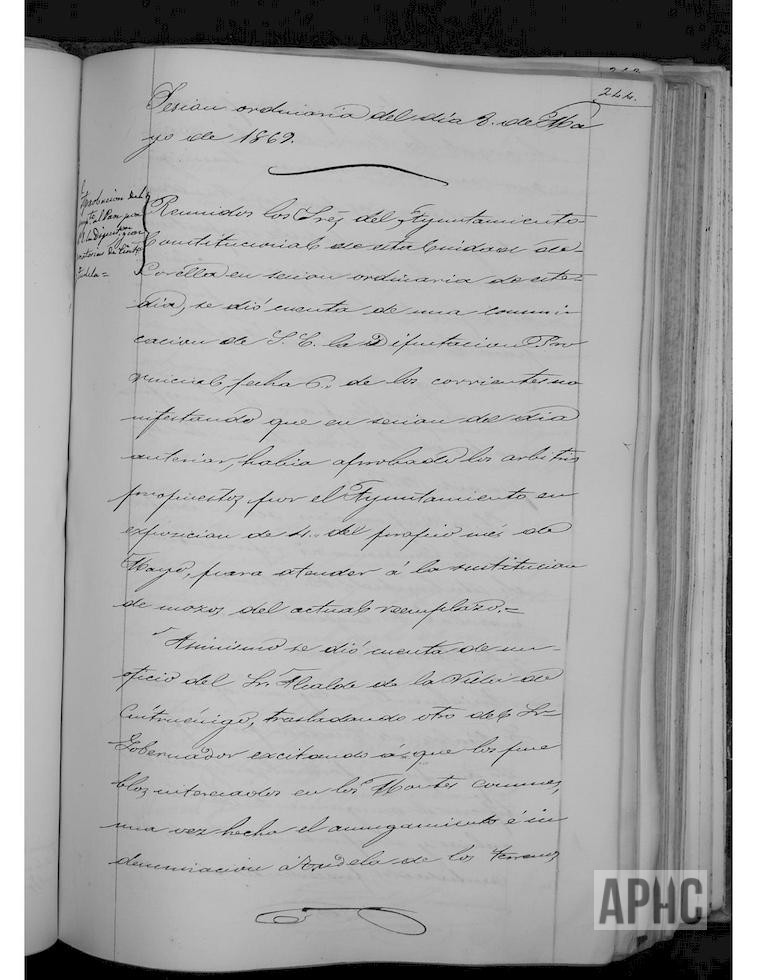 244.
Sesion ordinaria del dia 8. de Ma
yo de 1869.
Reunidos los Sres del Ayuntamiento
Constitucional de esta Ciudad de
Corella en sesion ordinaria de este
dia, se dió cuenta de una comuni
cacion de S. E. la Diputacion Pro
vincial, fecha 6. de los corrientes ma
nifestando que en sesion del dia
anterior, habia aprobado los arbitrios
propuestos por el Ayuntamiento en
exposicion de 4. del propio mes de
Mayo, para atender á la sustitucion
de mozos del actual reemplazo.=
Asimismo se dió cuenta de un
oficio del Sr. Alcalde de la Villa de
Cintruénigo, trasladando otro del Sr
Gobernador excitando á que los pue
blos interesados en los Montes comunes,
una vez hecho el amugamiento é in
demnizacion á Tudela de los terrenos
APHC